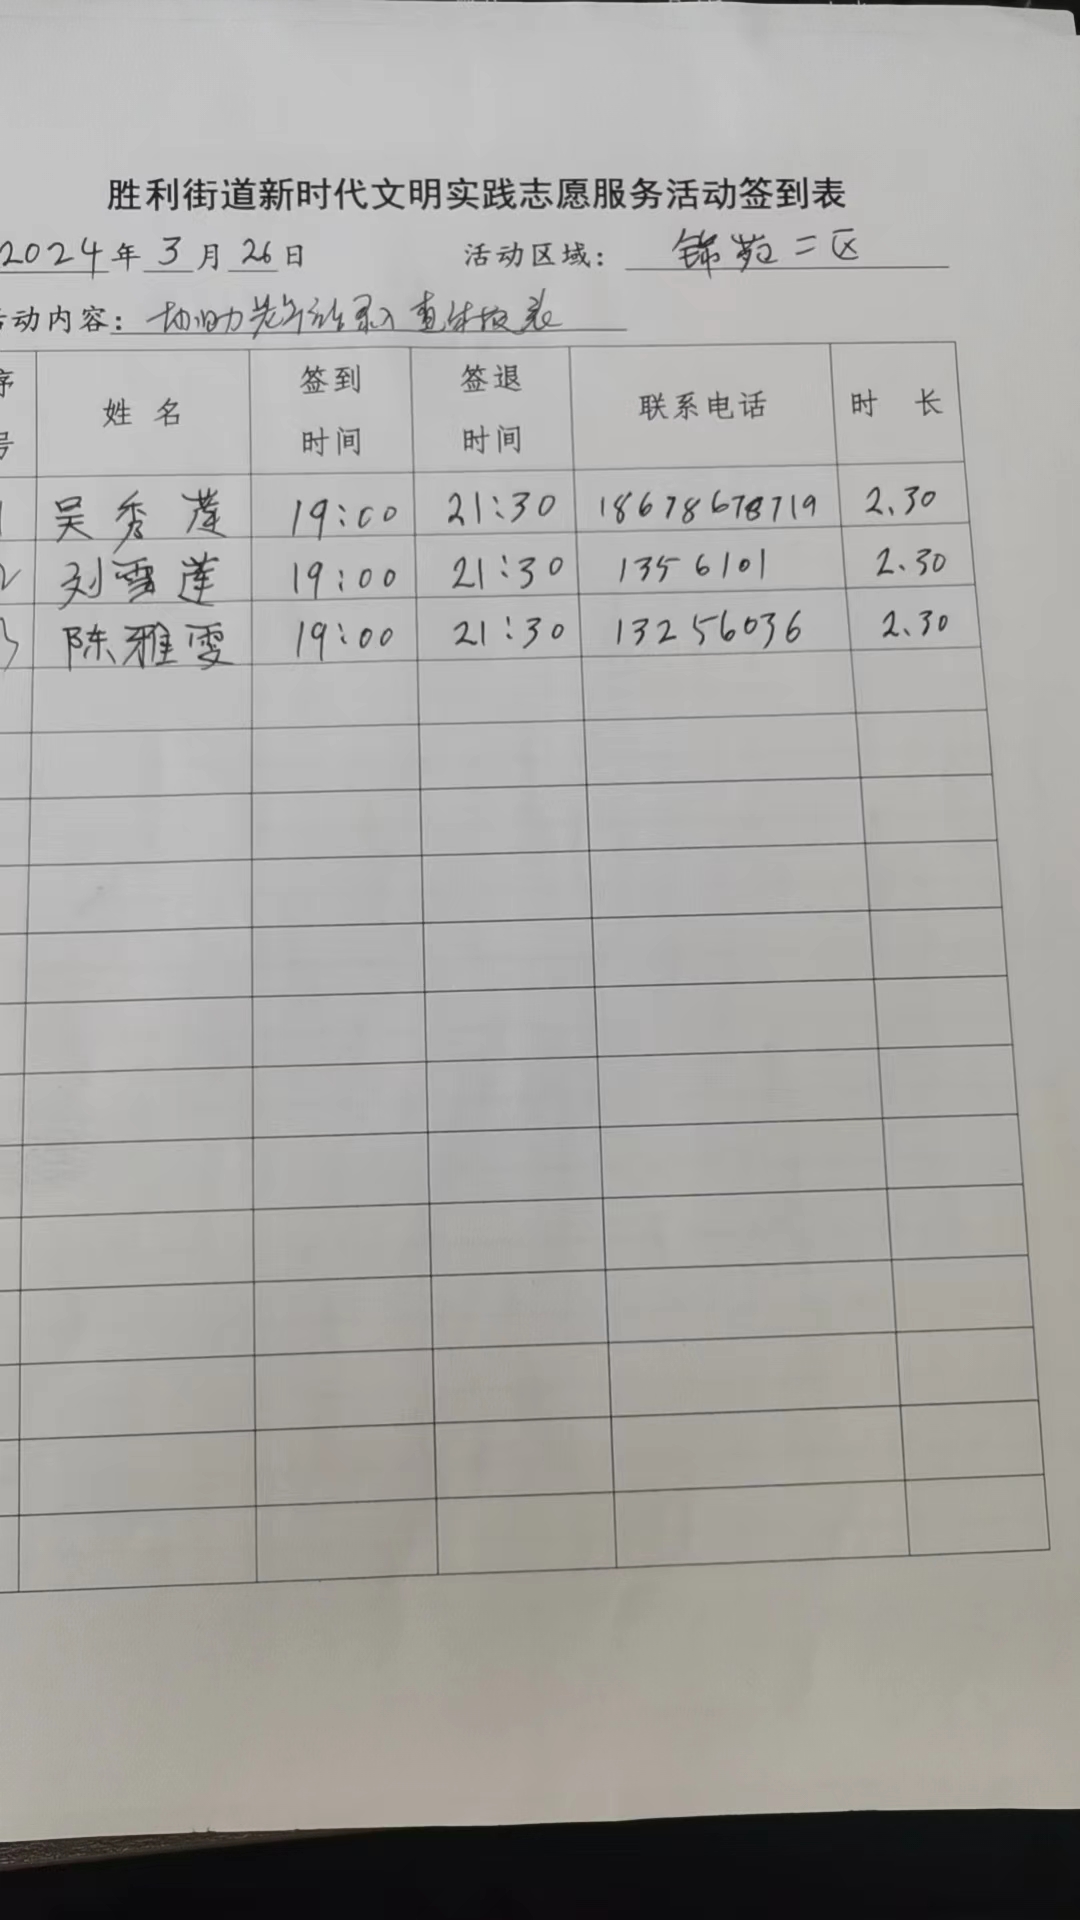 胜利街道新时代文明实践志愿服务活动签到表
2024年 3 月 26 日 活动区域： 锦苑二区
活动内容： 协助 录入 查体报表
序号 姓名 签到时间 签退时间 联系电话 时长
1 吴秀莲 19:00 21:30 18678678719 2.30
2 刘雪莲 19:00 21:30 1356101 2.30
3 陈雅雯 19:00 21:30 13256036 2.30